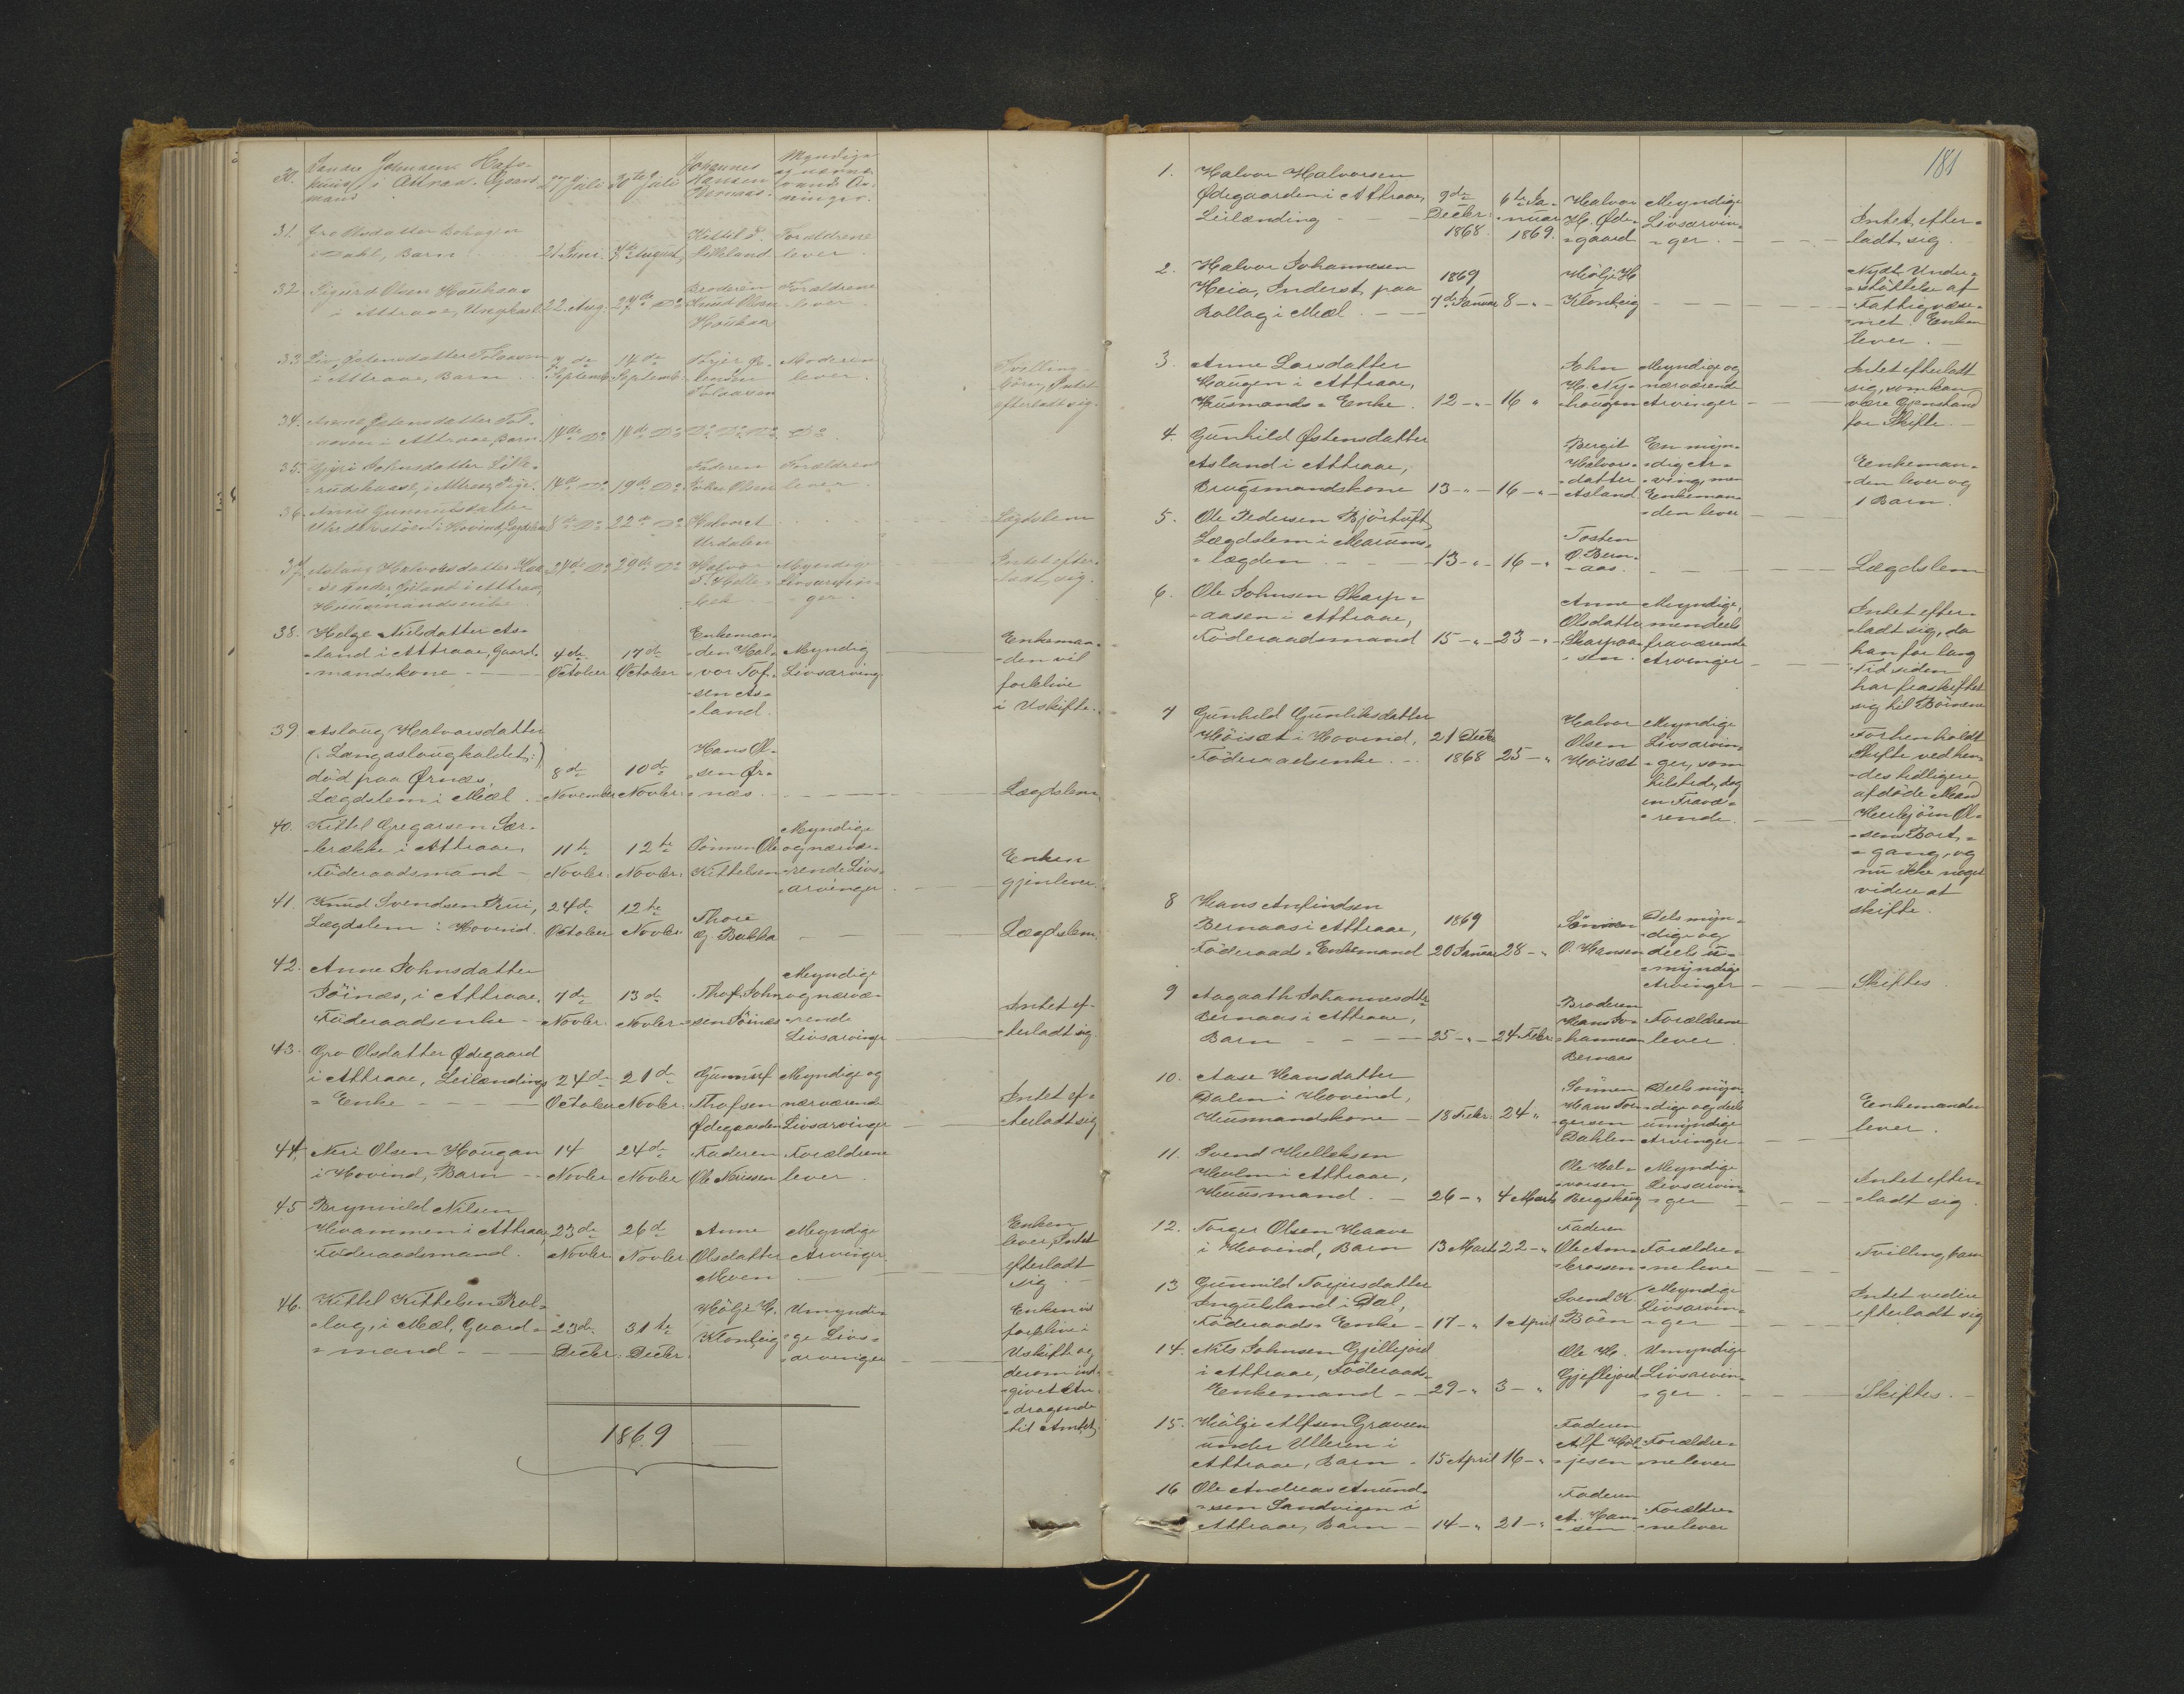 30. Sander Johnsen Hafs-
i Attraa. Gaard
mand
27 Juli 30te Juli
Johannes
Hansen
Bernaas.
Myndige
og nærvæ-
rende Ar-
vinger.
31. Gro Olsdatter Bakhagen
i Dahl, Barn
21 Juni. 7de August,
Kittel
Lilleland
Forældrene
lever.
32. Sigurd Olsen Haukaas
i Attraae, Ungkarl 22. Aug. 27de Do
Broderen
Knud Olsen
Haukaas
Forældrene
lever
33 Liv Østensdatter Tolaaven
i Attraae, Barn
7de
Septemb.
14de
Septemb.
Moderen
lever.
Tvilling-
börn, Intet
efterladt sig.
34. Anne Østensdatter Tol-
aaven i Attraae, Barn 14de Do 14de Do Do Do Do Do
35. Gjyri Johnsdatter Litle-
rudshaave, i Attraae, Pige. 14de Do 19de Do
Faderen
John Olsen
Forældrene
lever.
36. Annis Gunnulsdatter
i Hovind, Lægdslem 22de Do Halvor
Urdalen
Lægdslem
37. Aslaug Halvorsdatter
under i Attraa,
Huusmandsenke
29de Do
Halvor
Myndige
Livsarvin-
ger.
Intet efter-
ladt sig.
38. Helge Nielsdatter As-
land i Attraae, Gaard-
mandskone -
4de
October
17de
October
Enkeman-
den Hal-
vor Tof-
sen As-
land.
Myndig
Livsarving
Enkeman-
den vil
forblive
i Uskifte.
39 Aslaug Halvorsdatter
(: Langaslaug kaldet:)
död paa Ørnæs,
Lægdslem i Mæl.
8de
November
10de
Novbr.
Hans Ol-
sen Ør-
næs.
Lægdslem.
40. Kittel Gregarsen Sær-
brække i Attraae,
Föderaadsmand -
11te
Novbr.
12te
Novbr.
Sönnen Ole
Kittelsen
Myndige
og nærvæ-
rende Livs-
arvinger
Enken
gjenlever.
41. Knud Svendsen Rui,
Lægdslem i Hovind.
24de
October
12te
Novbr
Thore
G. Bakka
Lægdslem.
42. Anne Johnsdatter
Söinæs, i Attraae,
Föderaadsenke -
7de
Novbr.
13de
Novbr.
Thof. John-
sen Söinæs
Myndige
og nærvæ-
rende
Livsarvinger
Intet ef-
terladt sig.
43. Gro Olsdatter Ødegaard
i Attraae, Leilændings
Enke - - - -
24de
October
21de
Novbr.
Gunnuf
Thofsen
Ødegaarden
Myndige og
nærværende
Livsarvinger
Intet ef-
terladt sig
44. Neri Olsen Haugan
i Hovind, Barn -
14
Novbr
24de
Novbr
Faderen
Ole Neriesen
Forældrene
lever.
45 Brynnild Nilsen
Hvammen i Attraae,
Föderaadsmand.
23de
Novbr
26de
Novbr
Anne
Olsdatter
Moen
Myndige
Arvinger.
Enken
lever, Intet
efterladt
sig.
46. Kittel Kittelsen Rol-
lag, i Mæl, Gaard-
mand - - -
23de
Decbr.
31te
Decbr.
Hölje H.
Klonteig
Umyndi-
ge Livs-
arvinger
Enken vil
forblive i
Uskifte og
derom ind-
givet An-
dragende
til Amtet.
1869
181
1. Halvor Halvorsen
Ødegaarden i Attraae,
Leilænding
9de
Decbr.
1868.
6te Ja-
nuar
1869.
Halvor
H. Øde-
gaard
Myndige
Livsarvin-
ger.
Intet efter-
ladt sig.
2. Halvor Johannesen
Heia, Inderst paa
Rollag i Mæl.
1869
7de Januar 8 - "
Hölje H
Klonteig
Nydt Under-
støttelse af
Fattigvæse-
net. Enken
lever.
3. Anne Larsdatter
Haugen i Attraae,
Husmands-Enke. 12 - " - 16 "
John
H. Ny-
haugen
Myndige og
nærværende
Arvinger
Intet efterladt
sig, som kan
være Gjenstand
for Skifte.
4. Gunhild Østensdatter
Asland i Attraae,
Brugsmandskone 13 - " - 16 - "
Bergit
Halvors-
datter
Asland
En myn-
dig Ar-
ving, men
Enkeman-
den lever
Enkeman-
den lever og
1 Barn.
5. Ole Pedersen Björtuft,
Lægdslem i Marums-
lægden. 13 - " - 16 - "
Tosten
O. Bern-
aas.
Lægdslem
6. Ole Johnsen Skarp-
aasen i Attraae,
Föderaadsmand 15 - " - 23 - "
Anne
Olsdatter
Skarpaa-
sen.
Myndige,
men deels
fraværende
Arvinger
Intet efter-
ladt sig, da
han for lang
Tid siden
har fraskiftet
sig til Börnene
7 Gunhild Gunliksdatter
Höisæt i Hovind,
Föderaadsenke.
21 Decbr
1868 25 - "
Halvor
Olsen
Höisæt
Myndige
Livsarvin-
ger, som
tilstede, dog
en Fravæ-
rende.
Forhen holdt
Skifte ved hen-
des tidligere
afdöde Mand
Herbjörn Ol-
sens Bort-
gang, og
nu ikke noget
videre at
skifte.
8 Hans Anfindsen
Bernaas i Attraae,
Föderaads-Enkemand
1869
20 Januar 28 - "
Sönnen
O. Hansen
Dels myn-
dige og
deels u-
myndige
Arvinger
Skiftes.
9 Aagaath Johannesdtr
Bernaas i Attraae,
Barn - - - - 25 - " - 24 Febr.
Broderen
Hans Jo-
hannesen
Bernaas
Forældrene
lever.
10. Aase Hansdatter
Dalen i Hovind,
Huusmandskone - 18 Febr. 24 "
Sönnen
Hans Tor-
gersen
Dahlen
Deels myn-
dige og deels
umyndige
Arvinger
Enkemanden
lever.
11. Svend Helleksen
Holm i Attraae,
Huusmand. - 26 - " 4 Marts
Ole Hal-
vorsen
Bergskaug
Myndige
Livsarvin-
ger
Intet efter-
ladt sig.
12. Torger Olsen Haave
i Hovind, Barn 13 Marts 22 - "
Faderen
Ole Am-
brossen
Forældre-
ne leve
Tvillingbarn
13 Gunnild Torjersdatter
Ingulsland i Dal,
Föderaads-Enke - 17 - " 1 April
Svend K.
Böen
Myndige
Livsarvin-
ger
Intet videre
efterladt sig
14. Nils Johnsen Gjellejord
i Attraae, Föderaads-
Enkemand - - 29 - " 3 - "
Ole H.
Gjeflejord
Umyndige
Livsarvin-
ger.
Skiftes.
15. Hölje Alfsen Graven
under Ulleren i
Attraae, Barn - 15 April 16 - "
Faderen
Alf Höl-
jesen
Forældre-
ne lever
16 Ole Andreas Amund-
sen Sandvigen i
Attraae, Barn - 14 - " 21 - "
Faderen
A. Han-
sen
Forældre-
ne lever